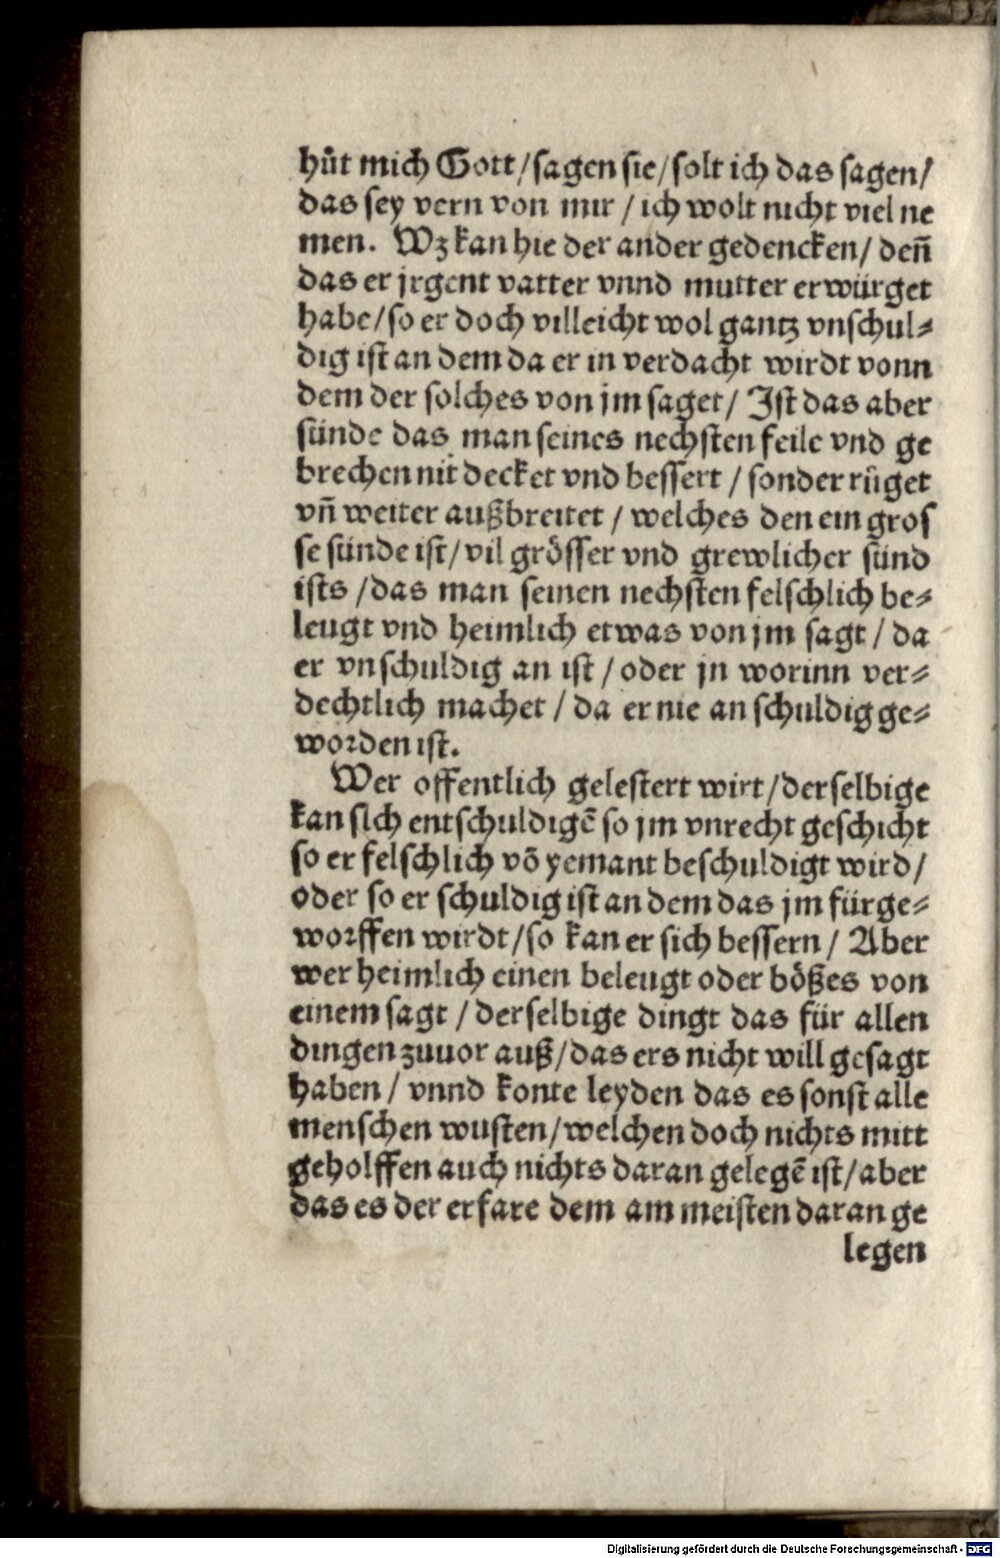 hůt mich Gott/sagen sie/solt ich das sagen/
das sey vern von mir / ich wolt nicht viel ne
men. Wz kan hie der ander gedencken/ deñ
das er jrgent vatter vnnd mutter erwürget
habe/so er doch villeicht wol gantz vnschul⸗
dig ist an dem da er in verdacht wirdt vonn
dem der solches von jm saget/ Ist das aber
sünde das man seines nechsten feile vnd ge
brechen nit decket vnd bessert / sonder růget
vñ weiter außbreitet / welches den ein gros
se sünde ist/vil grösser vnd grewlicher sünd
ists /das man seinen nechsten felschlich be⸗
leugt vnd heimlich etwas von jm sagt / da
er vnschuldig an ist / oder jn worinn ver⸗
dechtlich machet / da er nie an schuldig ge⸗
worden ist.
Wer offentlich gelestert wirt/derselbige
kan sich entschuldigē so jm vnrecht geschicht
so er felschlich vō yemant beschuldigt wird/
oder so er schuldig ist an dem das jm fürge⸗
worffen wirdt/so kan er sich bessern / Aber
wer heimlich einen beleugt oder bößes von
einem sagt / derselbige dingt das für allen
dingen zuuor auß/das ers nicht will gesagt
haben / vnnd konte leyden das es sonst alle
menschen wusten/welchen doch nichts mitt
geholffen auch nichts daran gelegē ist/aber
das es der erfare dem am meisten daran ge
legen
Digitalisierung gefördert durch die Deutsche Forschungsgemeinschaft - DFG